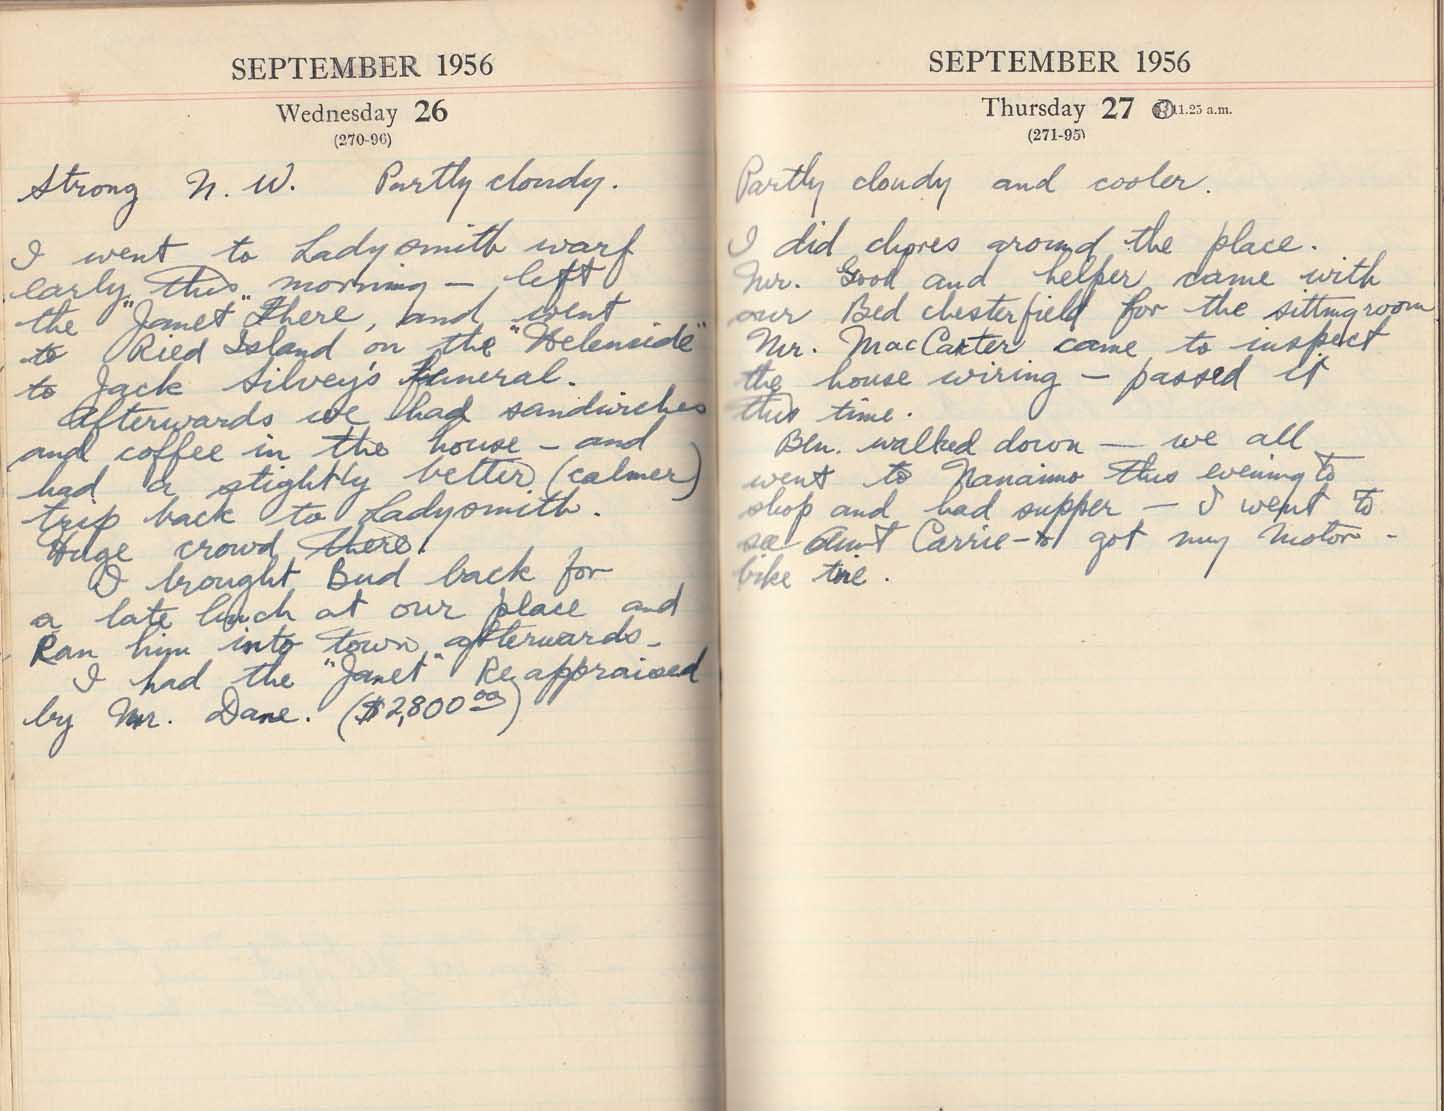 SEPTEMBER 1956
Wednesday 26
(270-96)
Strong N. W. Partly cloudy.
I went to Ladysmith warf
early this morning — left
the "Janet" there, and went
to Ried Island on the "Helenside"
to Jack Silvey's funeral.
Afterwards we had sandwiches
and coffee in the house — and
had a slightly better (calmer)
trip back to Ladysmith.
Huge crowd there.
I brought Bud back for
a late lunch at our place and
Ran him into town afterwards.
I had the "Janet" Reappraised
by Mr. Dane. ($2,800 00)
SEPTEMBER 1956
Thursday 27 11.25 a.m.
(271-95)
Partly cloudy and cooler.
I did chores around the place.
Mr. Good and helper came with
our Bed chesterfield for the sittingroom
Mr. MacCarter came to inspect
the house wiring — passed it
this time.
Ben. walked down — we all
went to Nanaimo this evening to
shop and had supper — I went to
see Aunt Carrie — to got my Motor -
bike tire.